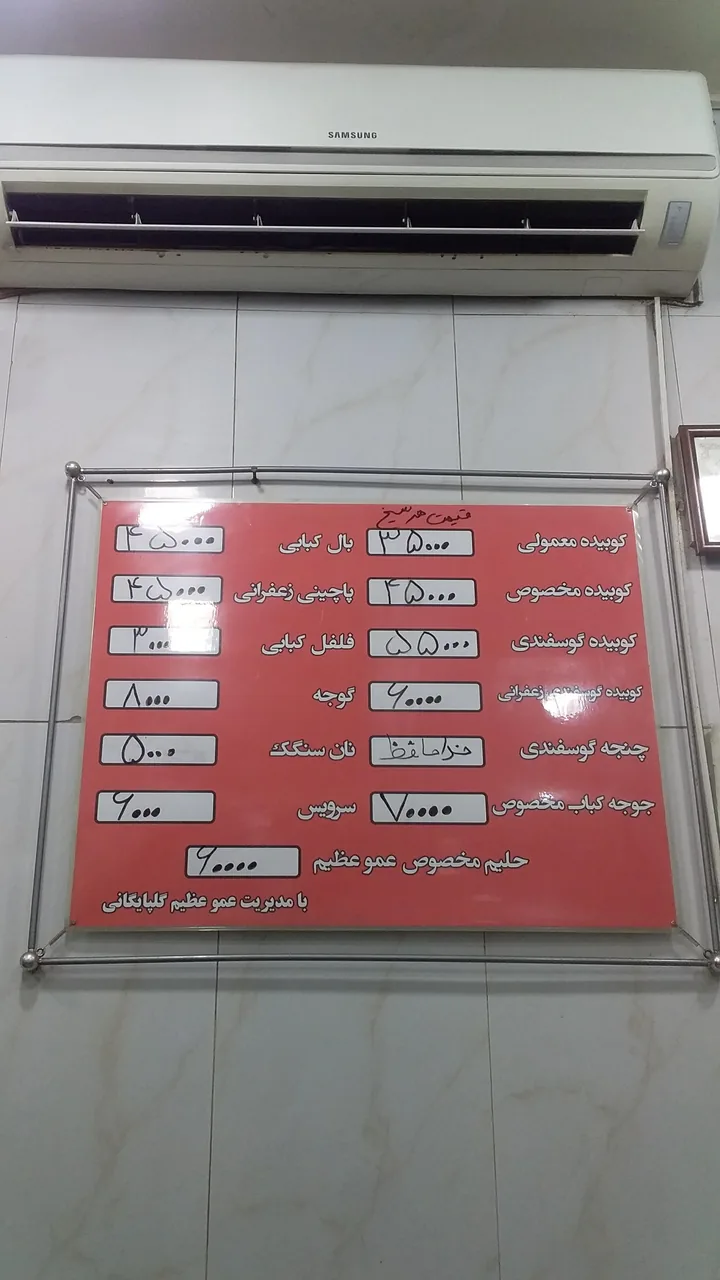 SAMSUNG
قیمت هر سیخ
کوبیده معمولی ۳۵۰۰۰ بال کبابی ۴۵۰۰۰
کوبیده مخصوص ۴۵۰۰۰ پاچینی زعفرانی ۴۵۰۰۰
کوبیده گوسفندی ۵۵۰۰۰ فلفل کبابی ۳۰۰۰
کوبیده گوسفندی زعفرانی ۶۰۰۰۰ گوجه ۸۰۰۰
چنجه گوسفندی خداحافظ نان سنگک ۵۰۰۰
جوجه کباب مخصوص ۷۰۰۰۰ سرویس ۶۰۰۰
حلیم مخصوص عمو عظیم ۶۰۰۰۰
با مدیریت عمو عظیم گلپایگانی